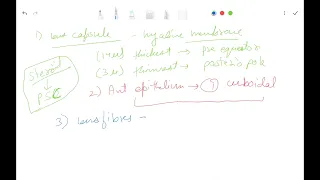 1) lens capsule - hyaline membrane
(14u) thickest → pre equator
(3u) thinnest → posterio pole
steroid
↓
PSC
2) Ant epithelium → cuboidal
3) lens fibres -